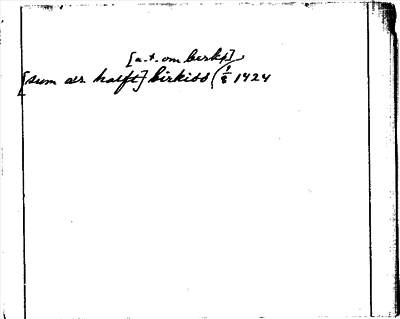 [a.t. om berkp]
[sum ær halft] birkiss (1/8 1424